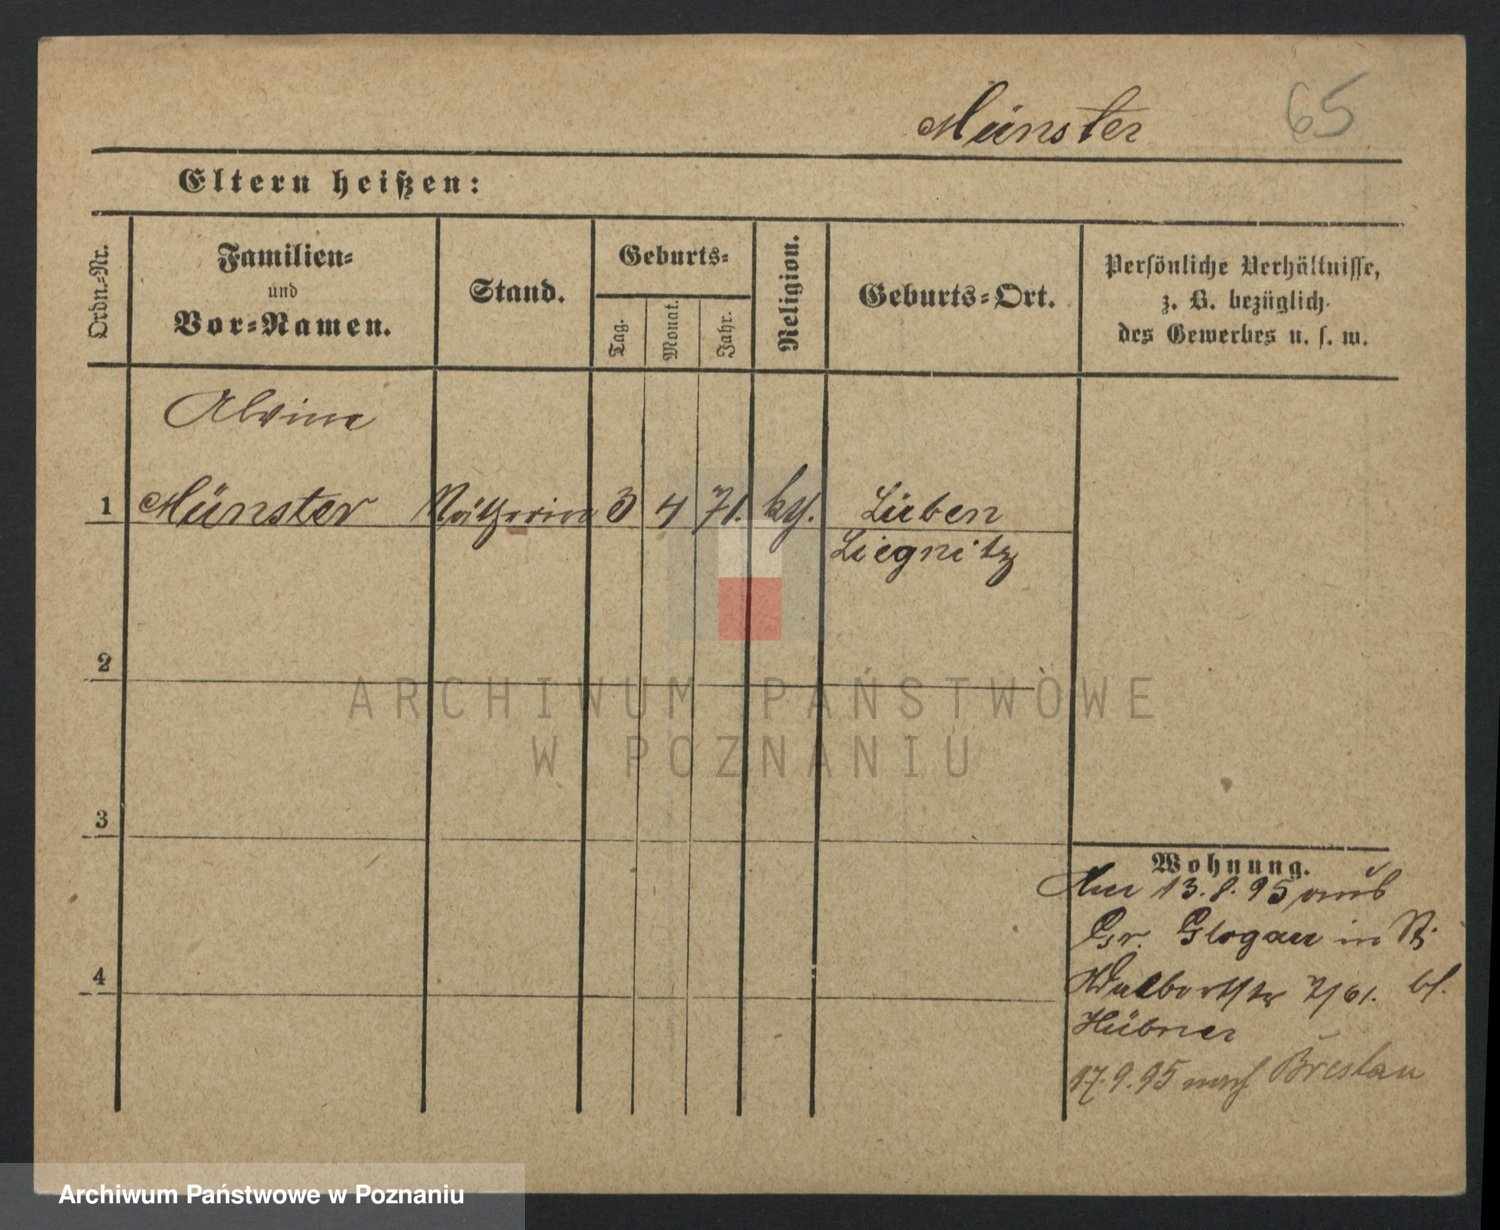 Münster 65
Eltern heißen:
Ordn.-Nr.
Familien-
und
Vor-Namen.
Stand.
Geburts-
Tag.
Monat.
Jahr.
Religion.
Geburts-Ort.
Persönliche Verhältnisse,
z. B. bezüglich
des Gewerbes u. s. w.
Alvine
1 Münster Nätherin 3 4 71. kth. Lüben
Liegnitz
2
3
4
Wohnung.
13.8.95 aus
Gr. Glogau in
Hübner
17.9.95 nach Breslau
ARCHIWUM PAŃSTWOWE
W POZNANIU
Archiwum Państwowe w Poznaniu